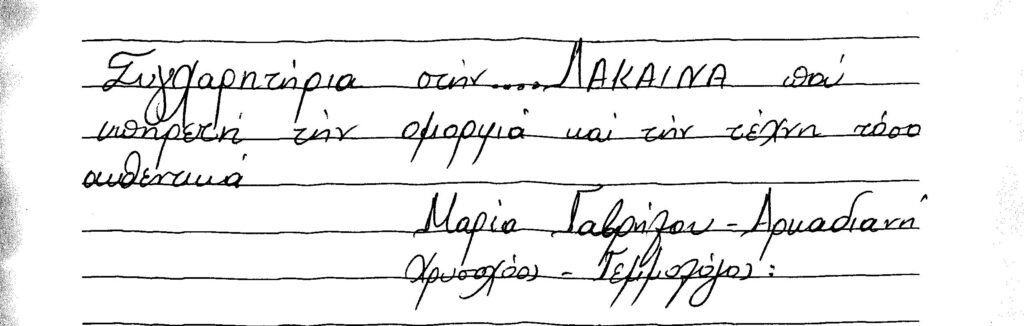 Συγχαρητήρια στήν.....ΛΑΚΑΙΝΑ πού
υπηρετή τήν ομορφιά καί τήν τέχνη τόσο
αυθεντικά
Μαρία Γαβρήλου - Αρκαδιανή
Χρυσοχόος - Γεμμολόγος: